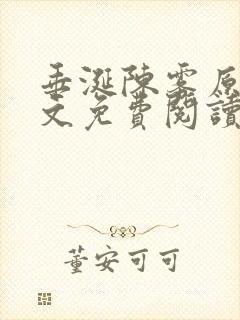 垂涎陳雾原
文免費閱讀
董安可可